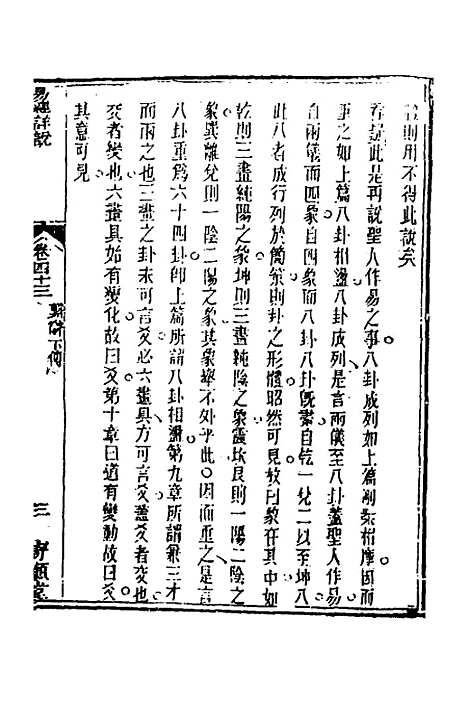 則用不得此說矣
存疑此是再說聖人作易之事八卦成列如上篇剛柔相摩因而
重之如上篇八卦相盪八卦成列是言兩儀至八卦蓋聖人作易
自兩儀而四象自四象而八卦八卦旣畫自乾一兌二以至坤八
此八者成行列於簡策則卦之形體昭然可見故曰象在其中如
乾則三畫純陽之象坤則三畫純陰之象震坎艮則一陽二陰之
象巽離兌則一陰二陽之象其象舉不外乎此因而重之是言
八卦重爲六十四卦卽上篇所謂八卦相盪第九章所謂兼三才
而兩之也三畫之卦未可言爻必六畫具方可言爻蓋爻者交也
爻者變也六畫具始有變化故曰爻第十章曰道有變動故曰爻
其意可見
易經詳說
卷四十三
繫辭下傳
三
寄願堂